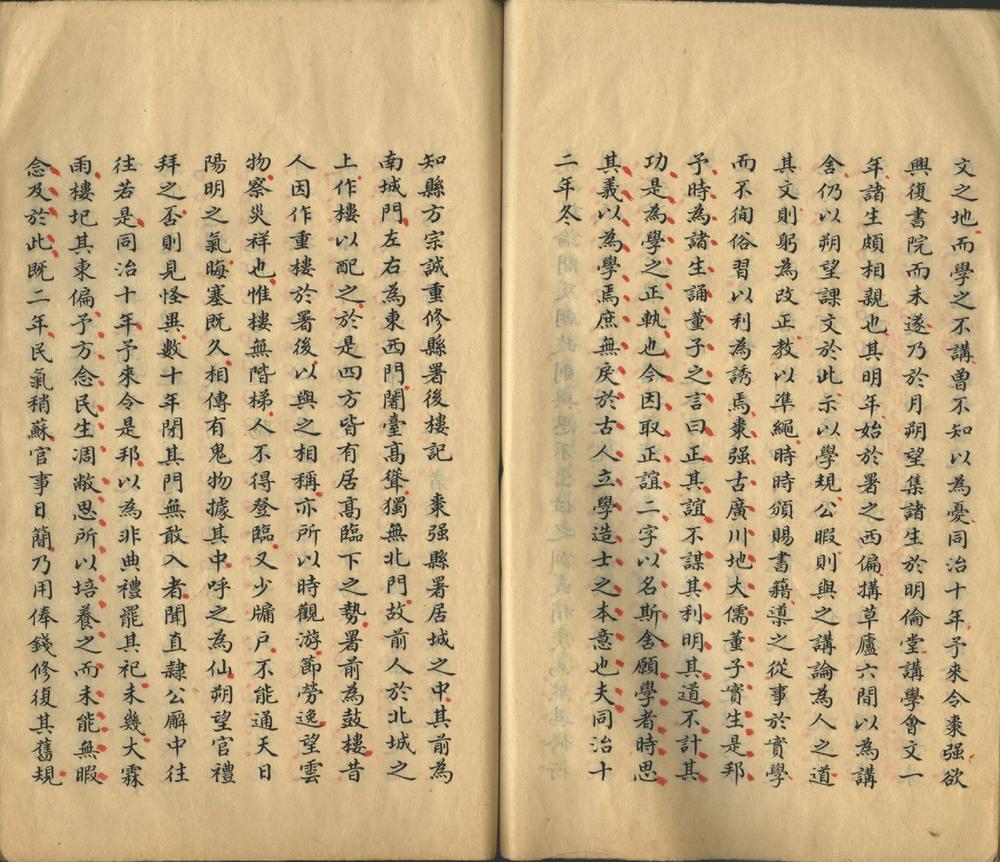 文之地而學之不講曾不知以為憂同治十年予來令棗强欲
興復書院而未遂乃於月朔望集諸生於明倫堂講學會文一
年諸生頗相親也其明年始於署之西偏搆草廬六間以為講
舍仍以朔望課文於此示以學規公暇則與之講論為人之道
其文則躬為改正教以準繩時時頒賜書籍導之從事於實學
而不徇俗習以利為誘焉棗强古廣川地大儒董子實生是邦
予時為諸生誦董子之言曰正其誼不謀其利明其道不計其
功是為學之正軌也今因取正誼二字以名斯舍願學者時思
其義以為學焉庶無戾於古人立學造士之本意也夫同治十
二年冬
知縣方宗誠重修縣署後樓記 棗强縣署居城之中其前為
南城門左右為東西門闍臺高聳獨無北門故前人於北城之
上作樓以配之於是四方皆有居高臨下之勢署前為鼓樓昔
人因作重樓於署後以與之相稱亦所以時觀游節勞逸望雲
物察災祥也惟樓無階梯人不得登臨又少牖戶不能通天日
陽明之氣晦塞既久相傳有鬼物據其中呼之為仙朔望官禮
拜之否則見怪異數十年閉其門無敢入者聞直隸公廨中往
往若是同治十年予來令是邦以為非典禮罷其祀未幾大霖
雨樓圮其東偏予方念民生凋敝思所以培養之而未能無暇
念及於此既二年民氣稍蘇官事日簡乃用俸錢修復其舊規